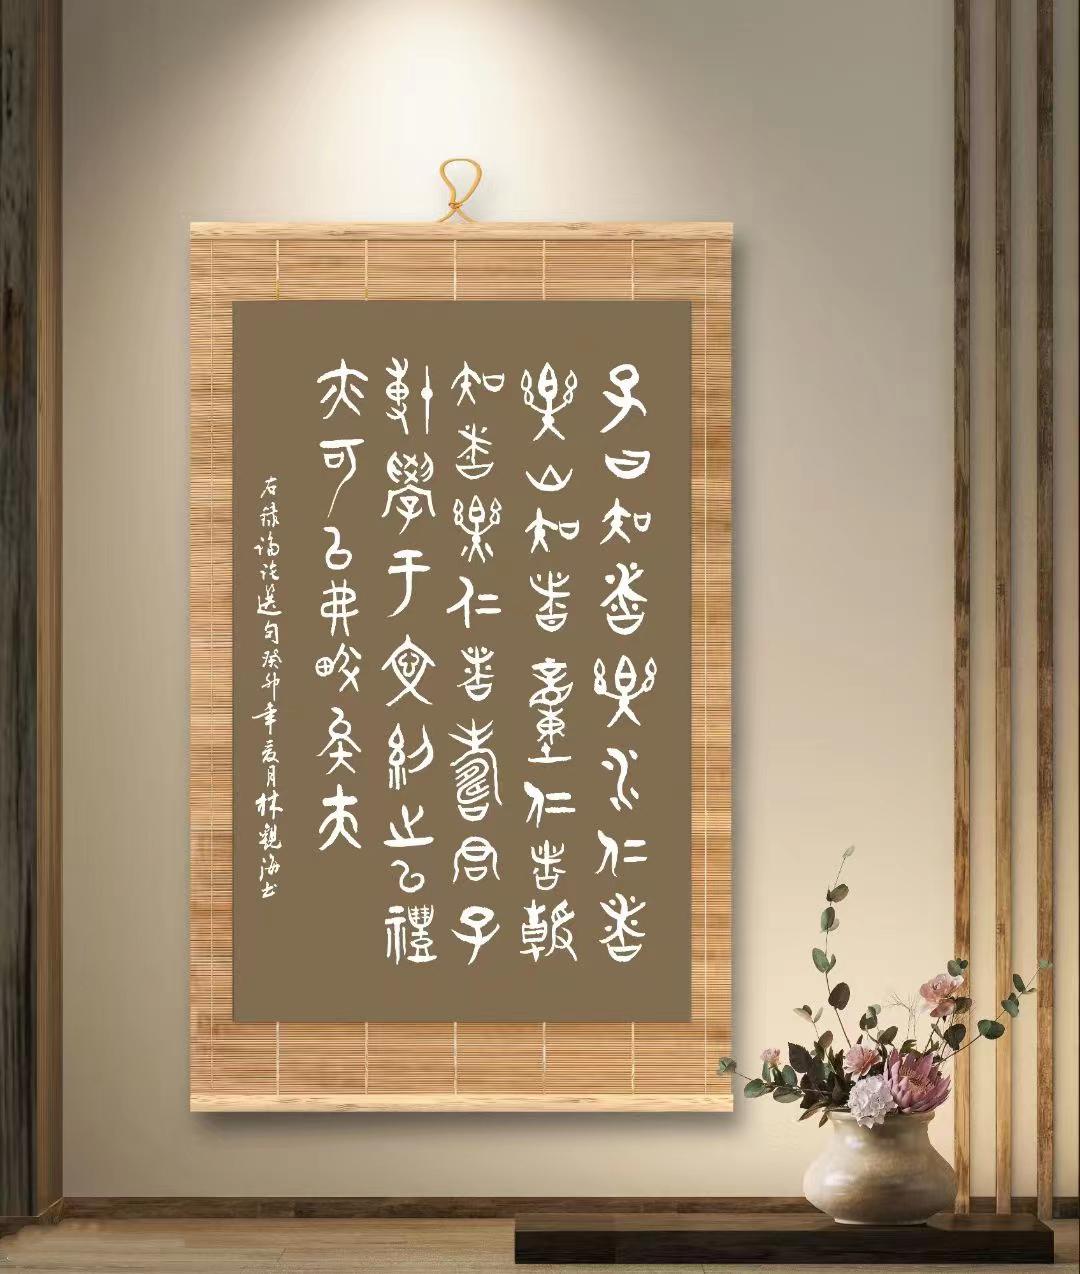 子曰知者樂水仁者
樂山知者動仁者靜
知者樂仁者壽君子
博學于文約之以禮
亦可以弗畔矣夫
右錄論語選句癸卯年夏月林觀海書